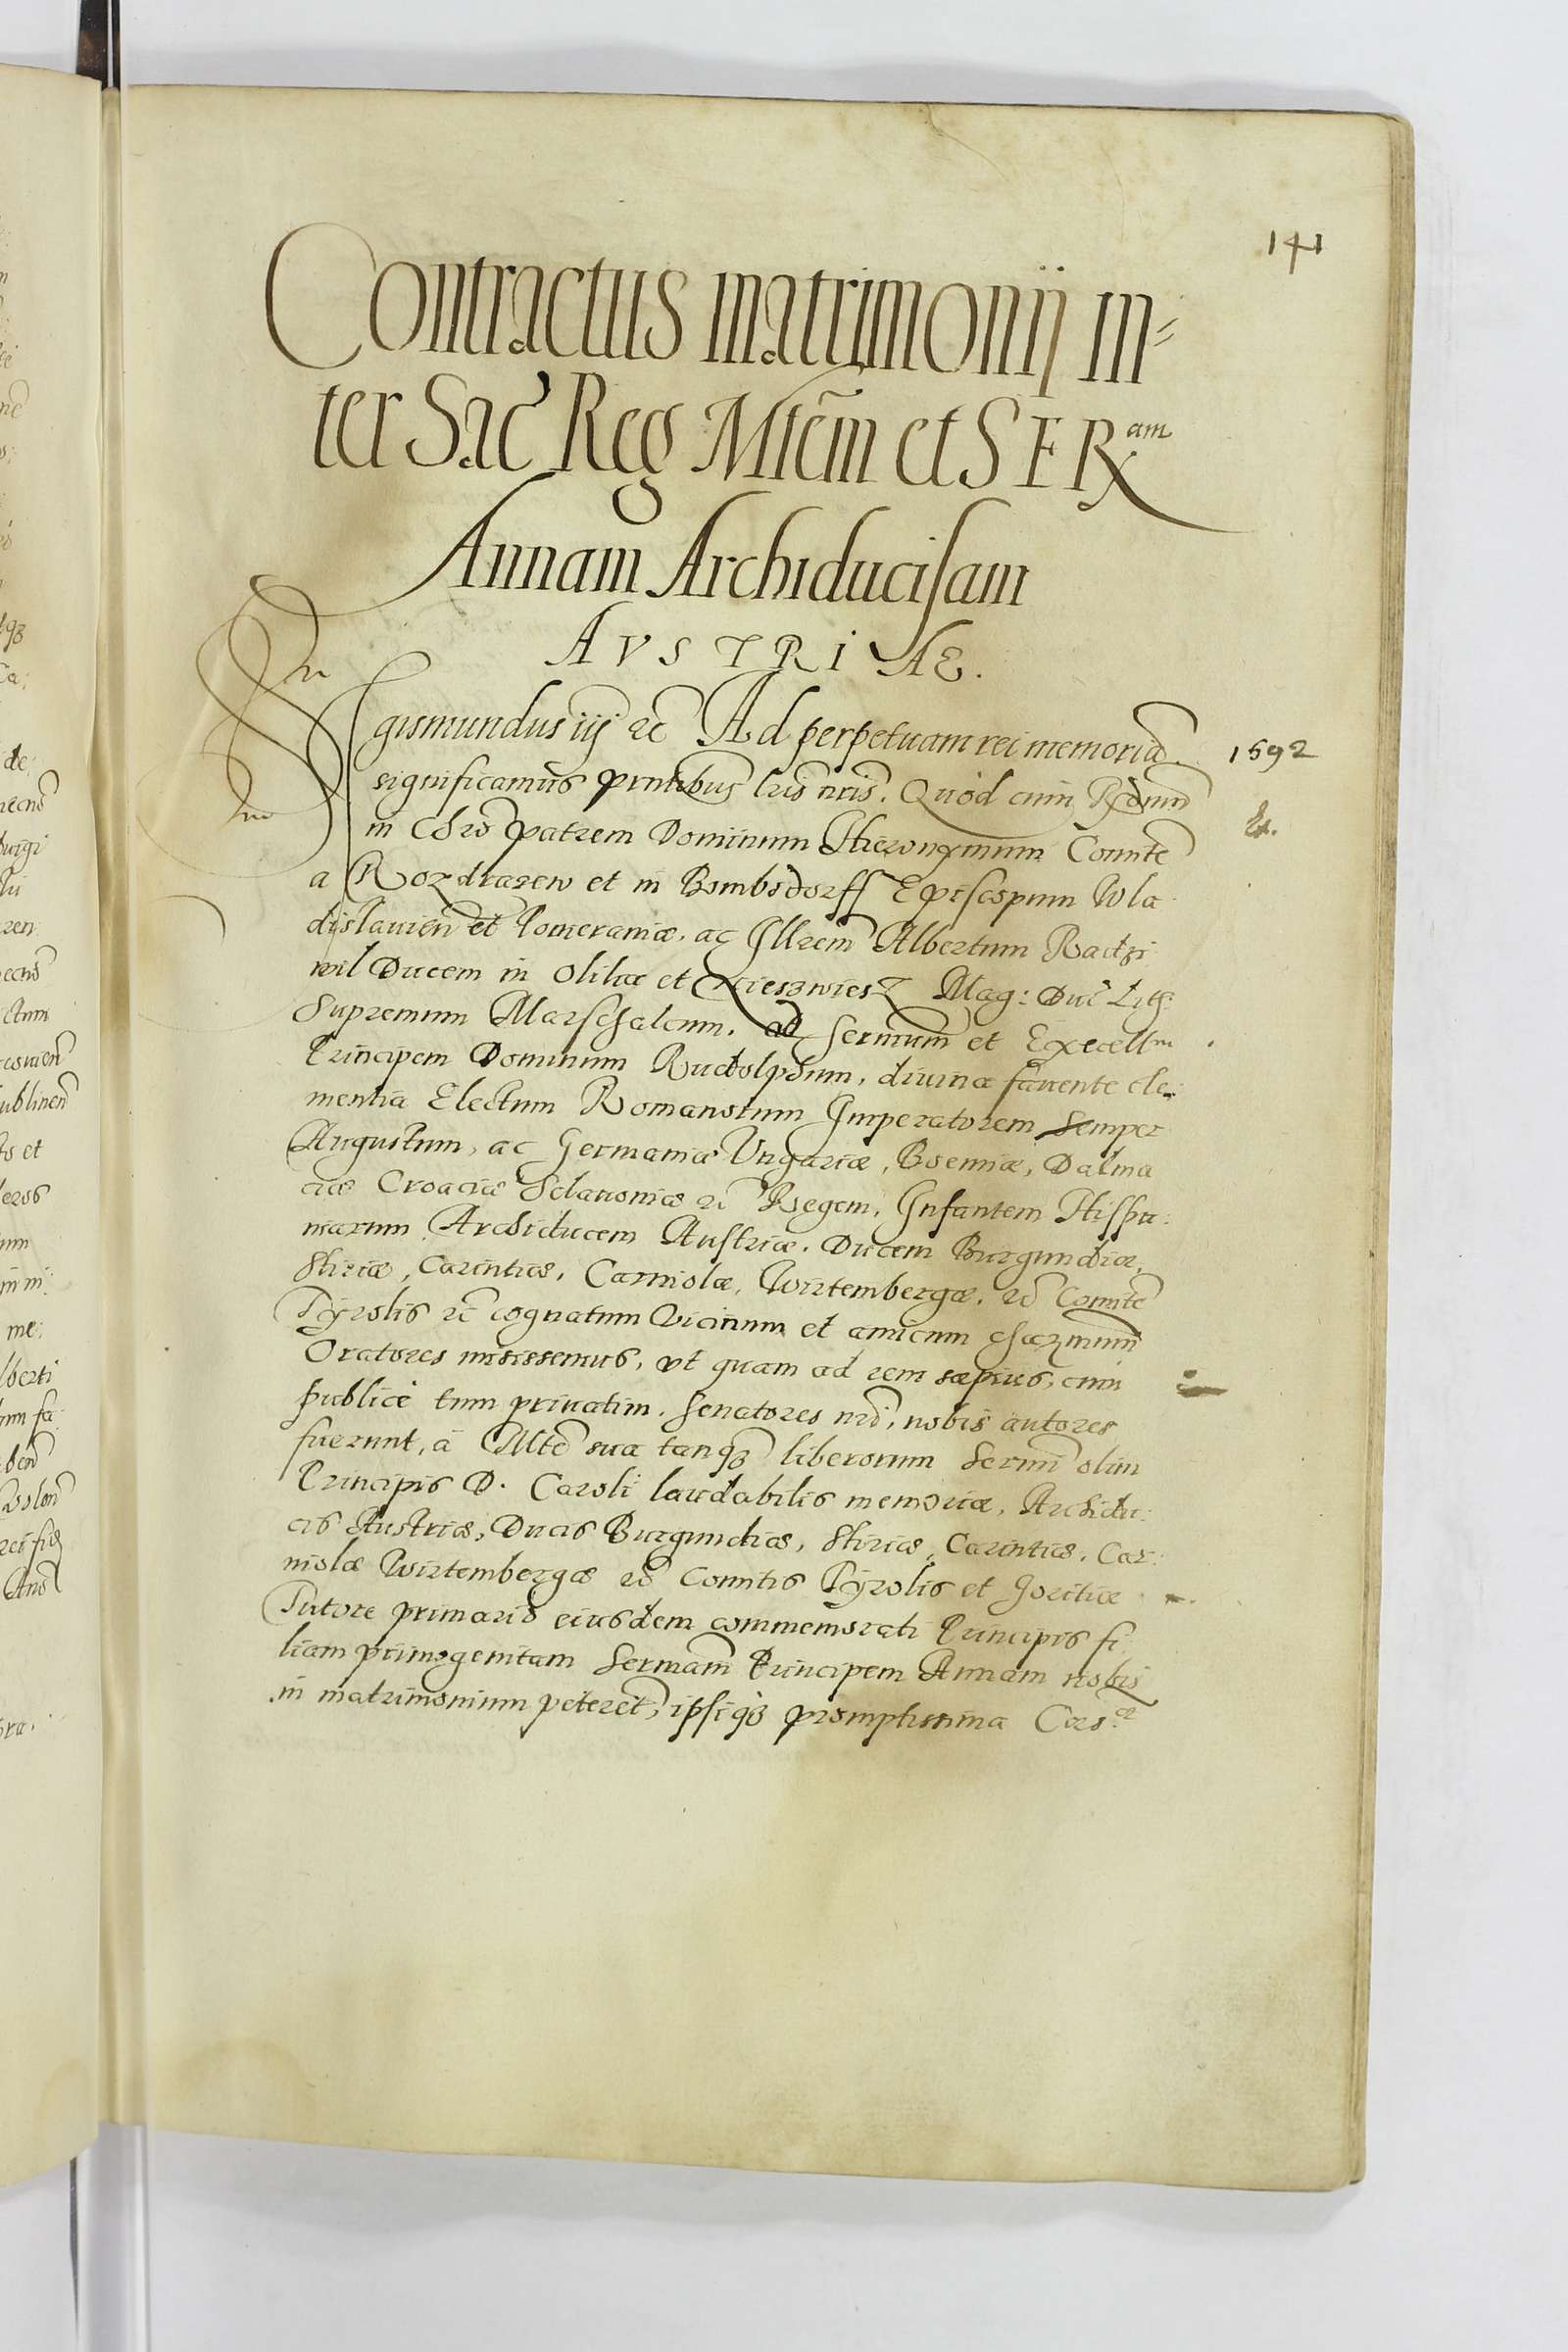 141
Contractus matrimonij in=
ter Sac̃ Reg Mtẽm et SER^am
Annam Archiducisam
AVSTRIAE.
Sigismundus iij ec̃ Ad perpetuam rei memoriã.
1592
significamus pñtibus lris nris. Quòd cum Rdum
in Chro patrem Dominum Hieronymum Comitẽ
a Rozdrazew et in Bombsdorff Episcopum Wla
dislavien̄ et Pomeraniæ, ac Illrem Albertum Radzi
wil Ducem in Olika et Niesswiesz Mag: Duc̃ Lith:
Supremum Marschalcum, ad Sermum et Excell^m
Principem Dominum Rudolphum, divina favente cle:
mentia Electum Romanorum Imperatorem Semper
Augustum, ac Germaniæ Ungariæ, Boemiæ, Dalma
ciæ Croaciæ Sclavoniæ ec̃ Regem, Infantem Hispa:
niarum Archiducem Austriæ, Ducem Burgundiæ,
Stiriæ, Carintiæ, Carniolæ, Wirtembergæ, ec̃ Comitẽ
Tÿrolis ec̃ cognatum Vicinum et amicum charmum
Oratores misissemus, vt quam ad rem sæpius, cum
publicè tum privatim, Senatores nri, nobis autores
fuerunt, à Mte sua tanq̃ liberorum Sermi olim
Principis D. Caroli laudabilis memoriæ, Archidu:
cis Austriæ, Ducis Burgundiæ, Stiriæ, Carintiæ, Car:
niolæ Wirtembergæ ec̃ Comitis Tÿrolis et Goritiæ
Tutore primario eiusdem commemorati Principis fi
liam primogenitam Sermam Principem Annam nobis
in matrimonium peteret, ipsiq3 promptissima Cæs^æ